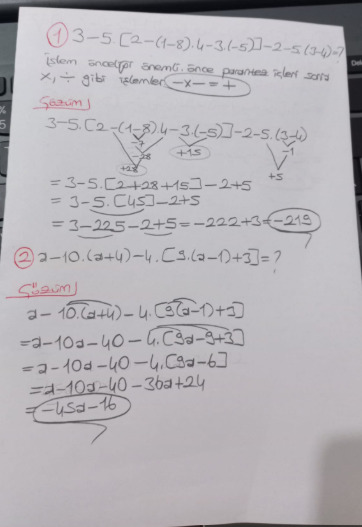 ① 3-5.[2-(1-8).4-3.(-5)]-2-5.(3-4)=?
işlem önceliği önemli. önce parantez içleri sonra
x, ÷ gibi işlemler -x-=+
Çözüm/
3-5.[2-(1-8).4-3.(-5)]-2-5.(3-4)
-7
-1
-28
+15
+28
+5
=3-5.[2+28+15]-2+5
=3-5.[45]-2+5
=3-225-2+5=-222+3=-219
② a-10.(a+4)-4.[9.(a-1)+3]=?
Çözüm/
a-10.(a+4)-4.[9(a-1)+3]
=a-10a-40-4.[9a-9+3]
=a-10a-40-4.[9a-6]
=a-10a-40-36a+24
=-45a-16